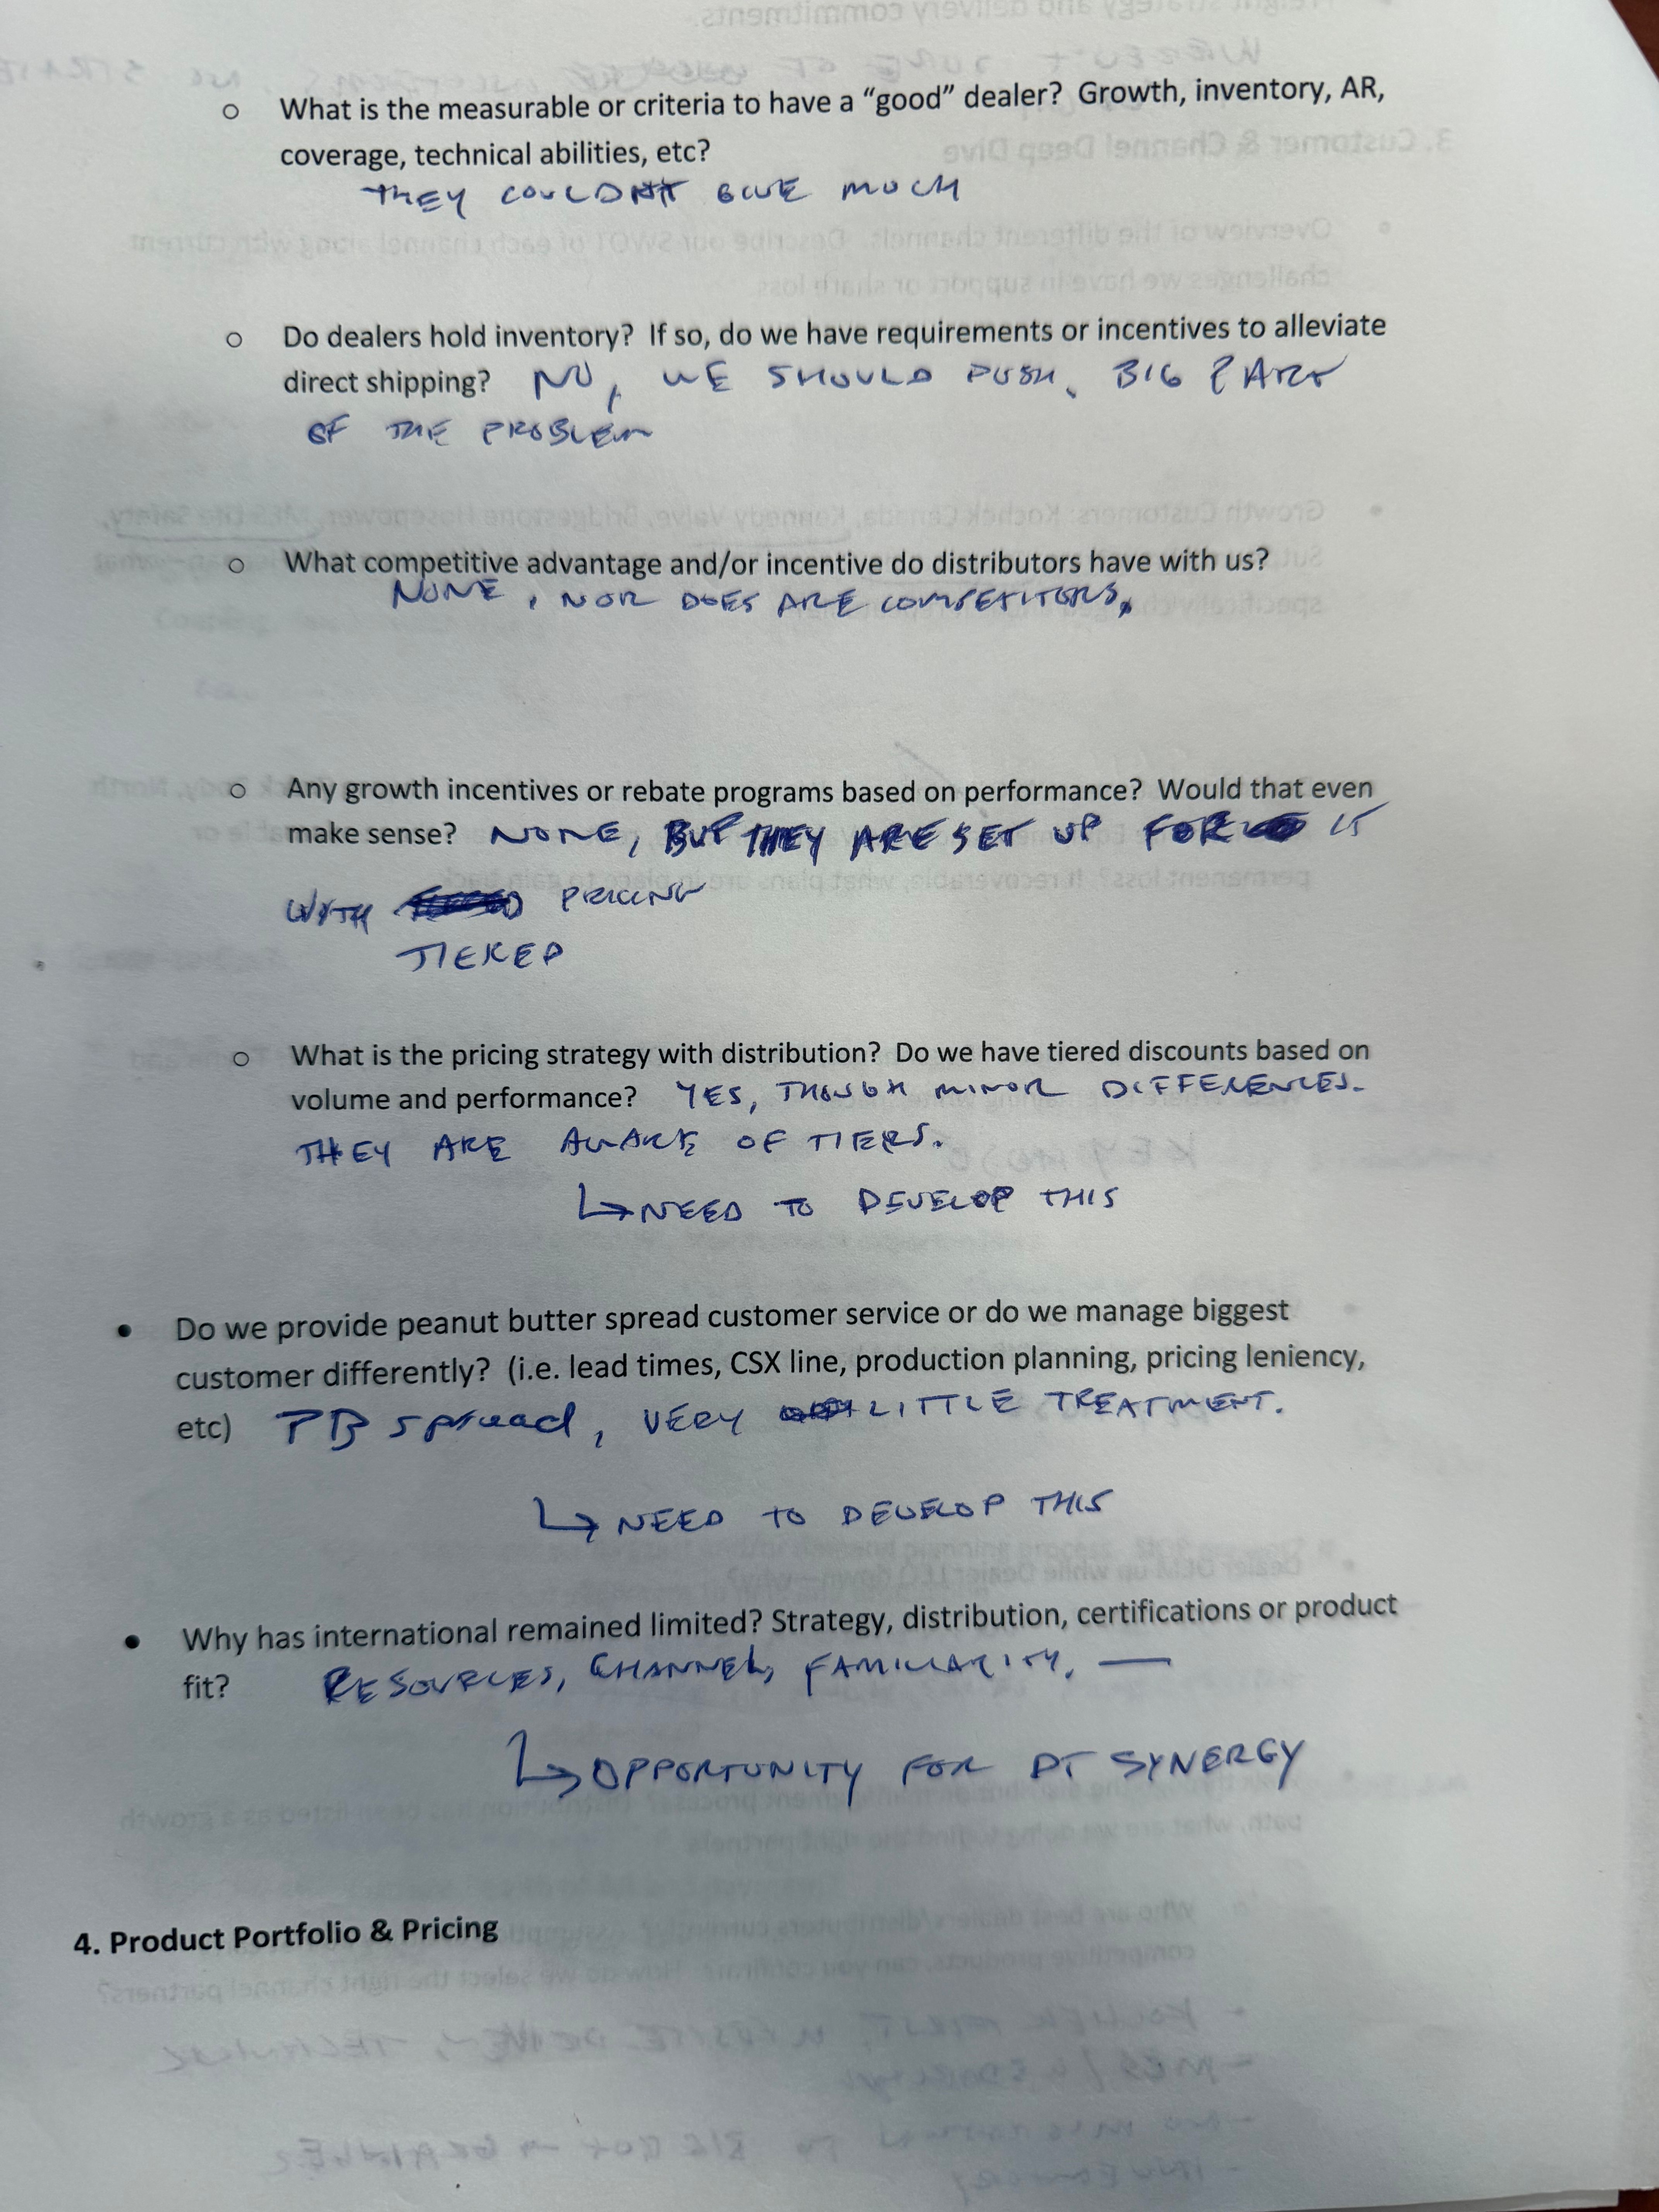 ○ What is the measurable or criteria to have a “good” dealer? Growth, inventory, AR,
coverage, technical abilities, etc?
THEY COULDN'T GIVE MUCH
○ Do dealers hold inventory? If so, do we have requirements or incentives to alleviate
direct shipping? NO, WE SHOULD PUSH. BIG PART
OF THE PROBLEM
○ What competitive advantage and/or incentive do distributors have with us?
NONE, NOR DOES ARE COMPETITORS.
○ Any growth incentives or rebate programs based on performance? Would that even
make sense? NONE, BUT THEY ARE SET UP FOR IS
WITH PRICING
TIERED
○ What is the pricing strategy with distribution? Do we have tiered discounts based on
volume and performance? YES, THOUGH MINOR DIFFERENCES.
THEY ARE AWARE OF TIERS.
↳ NEED TO DEVELOP THIS
• Do we provide peanut butter spread customer service or do we manage biggest
customer differently? (i.e. lead times, CSX line, production planning, pricing leniency,
etc) PB spread, VERY LITTLE TREATMENT.
↳ NEED TO DEVELOP THIS
• Why has international remained limited? Strategy, distribution, certifications or product
fit? RESOURCES, CHANNEL, FAMILIARITY. —
↳ OPPORTUNITY FOR DT SYNERGY
4. Product Portfolio & Pricing